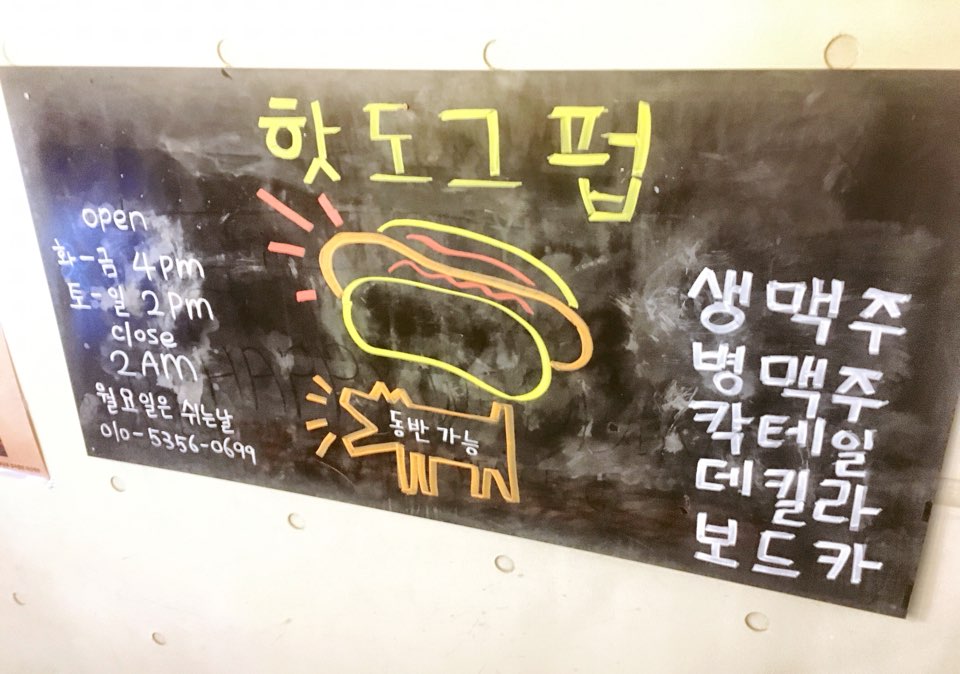 핫도그펍
open
화-금 4pm
토-일 2pm
close
2AM
월요일은 쉬는날
010-5356-0699
동반 가능
생맥주
병맥주
칵테일
데킬라
보드카